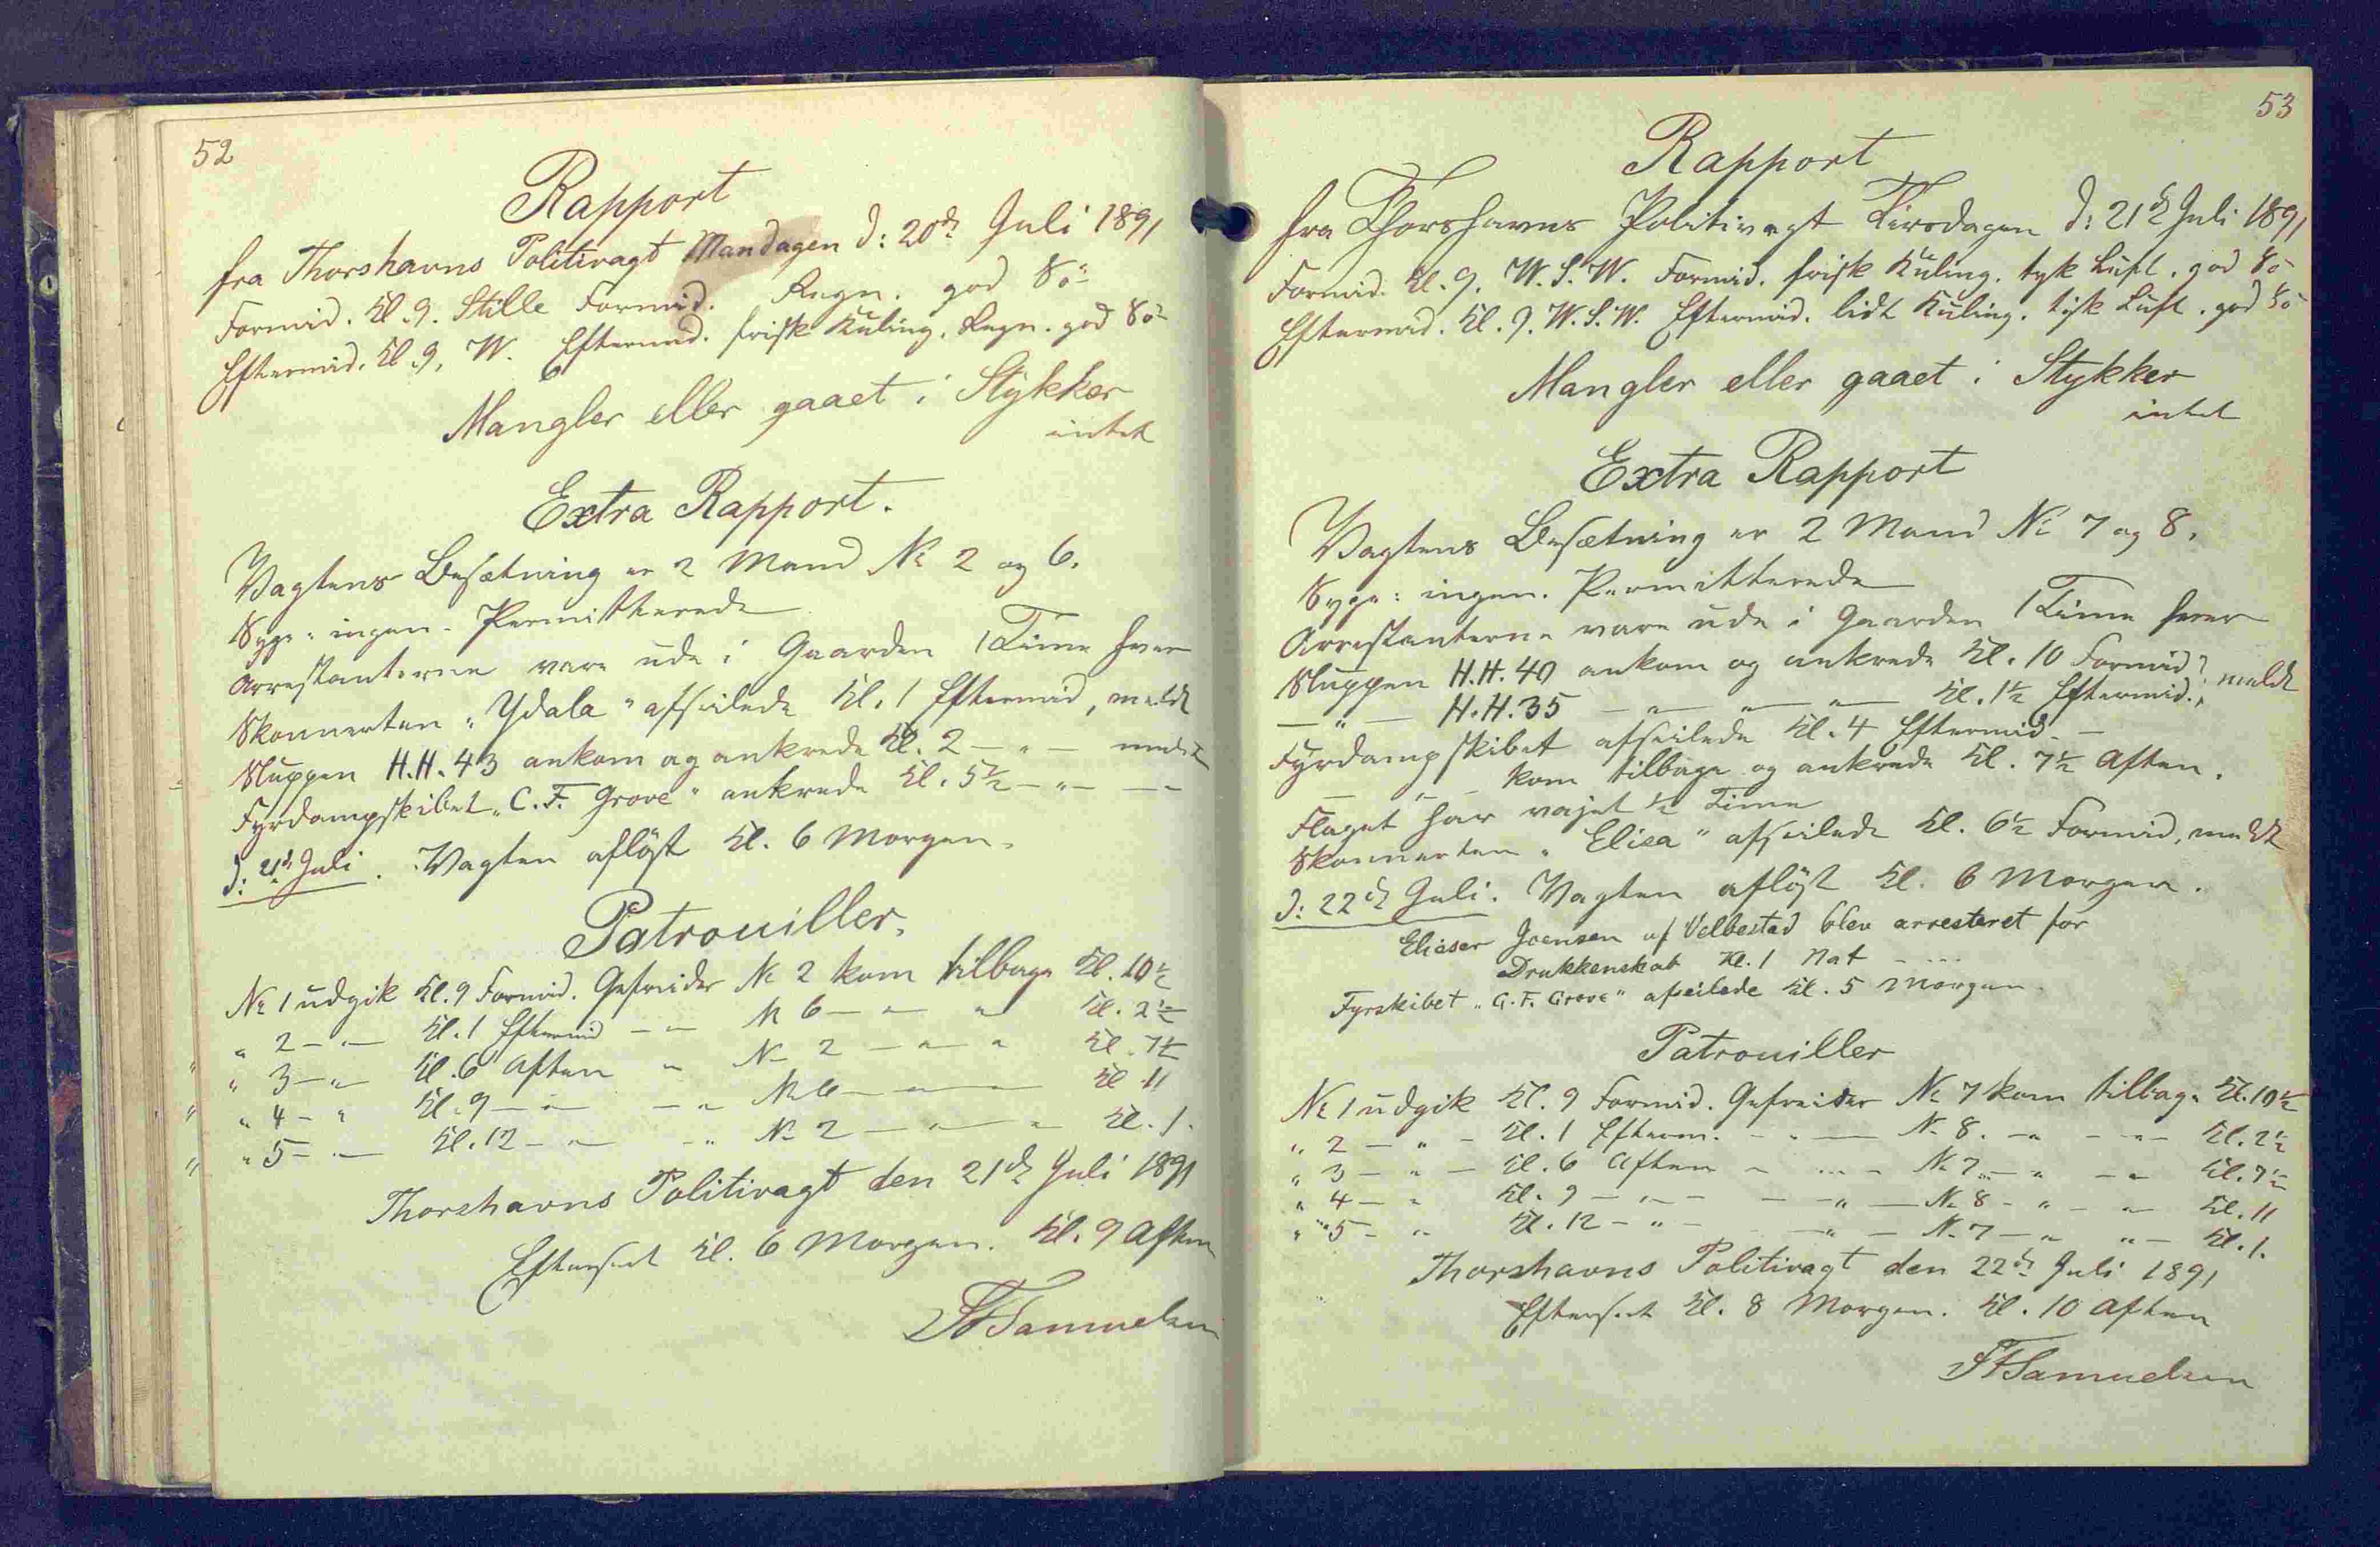 52
Rapport
fra Thorshavns Politivagt Mandagen d: 20de Juli 1891
Formid. Kl. 9. Stille Formid. Regn. god Sö
Eftermid. Kl. 9. W. Eftermid. frisk Kuling. Regn. god Sö
Mangler eller gaaet i Stykker
intet
Extra Rapport.
Vagtens Besætning er 2 Mand No 2 og 6.
Syge: ingen. Permitterede
Arrestanterne vare ude i Gaarden 1 Time hver
Skonnerten "Ydala" afseilede Kl. 1 Eftermid, meldt
Sluppen H.H. 43 ankom og ankrede Kl. 2 — " — meldt
Fyrdampskibet "C. F. Grove" ankrede Kl. 5½ — " — —
d: 21de Juli. Vagten aflöst Kl. 6 Morgen.
Patrouiller.
No 1 udgik Kl. 9 Formid. Gefreider No 2 kom tilbage Kl. 10½
" 2 — " — Kl. 1 Eftermid — " — No 6 — " — " Kl. 2½
" 3 — " — Kl. 6 Aften " No 2 — " — " Kl. 7½
" 4 — " Kl. 9 — " — — " No 6 — " — Kl 11
" 5 — " — Kl. 12 — " — — " No 2 — " — " Kl. 1.
Thorshavns Politivagt den 21de Juli 1891
Efterseet Kl. 6 Morgen. Kl. 9 Aften
Samuelsen
53
Rapport
fra Thorshavns Politivagt Tirsdagen d: 21de Juli 1891
Formid. Kl. 9. W.S.W. Formid. frisk Kuling. tyk Luft. god Sö
Eftermid. Kl. 9. W.S.W. Eftermid. lidt Kuling. tyk Luft. god Sö
Mangler eller gaaet i Stykker
intet
Extra Rapport
Vagtens Besætning er 2 Mand No 7 og 8.
Syge: ingen. Permitterede
Arrestanterne vare ude i Gaarden 1 Time hver
Sluppen H.H. 49 ankom og ankrede Kl. 10 Formid. meldt
— " — H.H. 35 — " — " — " — Kl. 1½ Eftermid. "
Fyrdampskibet afseilede Kl. 4 Eftermid. —
— " — kom tilbage og ankrede Kl. 7½ Aften.
Flaget har vajet ½ Time
Skonnerten "Elisa" afseilede Kl. 6½ Formid, meldt
d: 22de Juli. Vagten aflöst Kl. 6 Morgen.
Elieser Joensen af Velbestad blev arresteret for
Drukkenskab Kl. 1 Nat - ...
Fyrskibet "C. F. Grove" afseilede Kl. 5 Morgen.
Patrouiller
No 1 udgik Kl. 9 Formid. Gefreider No 7 kom tilbage Kl. 10½
" 2 — " — Kl. 1 Efterm. — " — No 8. — " — " — Kl. 2½
" 3 — " — Kl. 6 Aften — " — No 7 — " — " Kl. 7½
" 4 — " Kl. 9 — " — — " — No 8 — " — " — Kl. 11
" 5 — " Kl. 12 — " — — " — No 7 — " " — Kl. 1.
Thorshavns Politivagt den 22de Juli 1891
Efterseet Kl. 8 Morgen. Kl. 10 Aften
Samuelsen